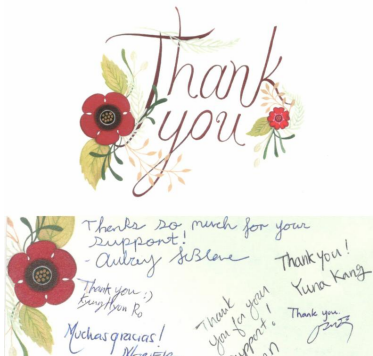 Thank
you
Thanks so much for your
support!
- Aubrey
Thank you :)
KyungHyun Ro
Muchas gracias!
Thank
you for your
support!
Thank you!
Yuna Kang
Thank you